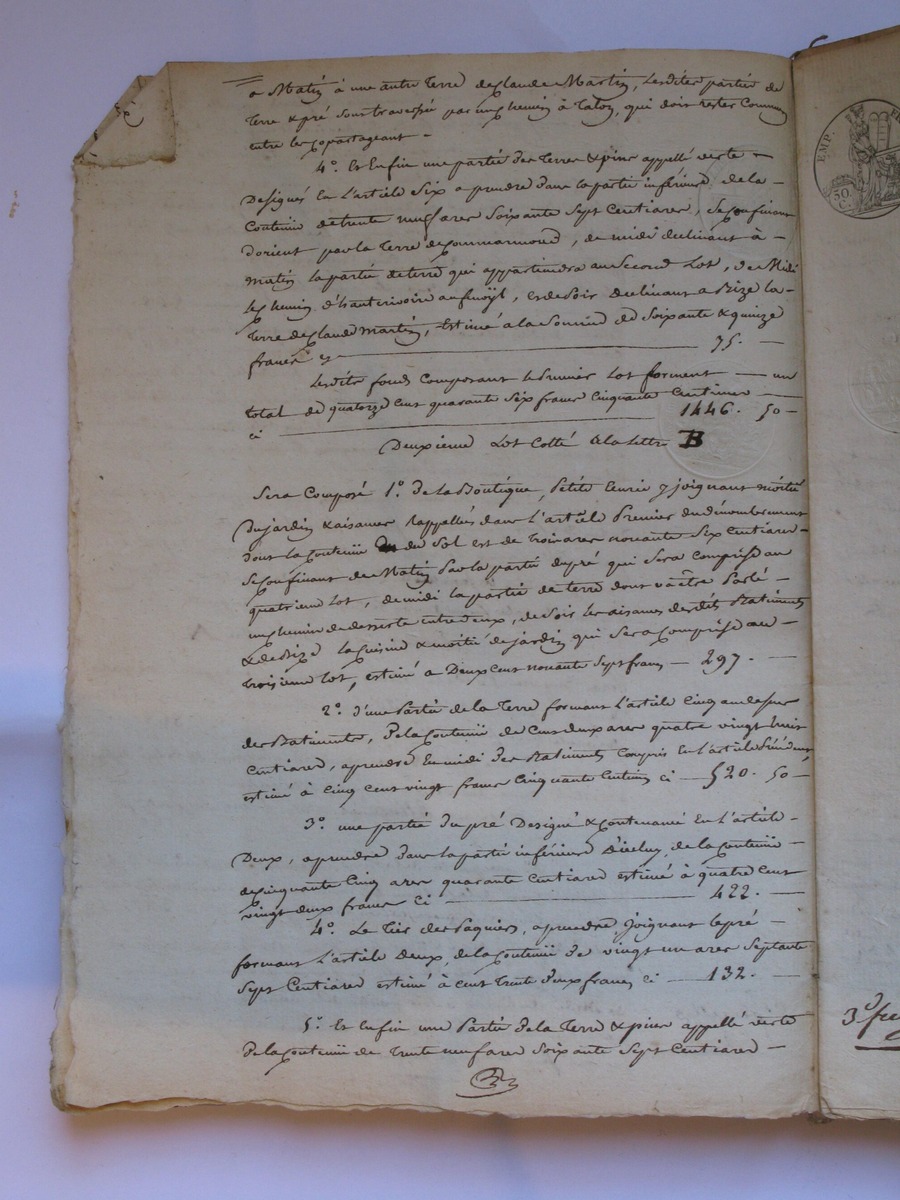 a Matin à une autre Terre de Claude Martin, Lesdites parties de
Terre & pré sont traversé par un chemin à Talon, qui doit rester Commun
entre les Copartageant -
4.° Et Enfin une partie des Terres & pins appellé verte -
Designés En L'article Six a prendre dans la partie inférieure de la -
Contenu de trente neuf ares Soixante Sept Centiares, Se Confinant
dorient par la Terre de , de midi declinant à -
Matin la partie de terre qui appartiendra au Second Lot, de Midi
le Chemin d'hauterivoire au , et de Soir declinant a Bize la -
Terre de Claude Martin, Estimé a la Somme de Soixante & quinze
francs cy 75. -
Lesdits fonds Composant le Premier Lot forment - un
total de quatorze cent quarante Six francs Cinquante Centimes
ci 1446. 50 -
Deuxieme Lot Cotté à la Lettre B
Sera Composé 1.° De la Boutique, Petite Ecurie y joignant moitié
Du jardin & aisances Rappellés dans L'article Premier du dénombrement
dont la Contenu du Sol est de Trois ares nonante Six Centiares -
Se Confinant de Matin par la partie de pré qui Sera Comprise au
quatrieme Lot, de midi la partie de terre dont va être Parlé -
un Chemin de desserte entre deux, de Soir les aisances desdits Batiments
& de Bize la Cuisine & moitié de jardin qui Sera Comprise au -
Troisieme Lot, estimé a Deux Cent nonante Sept francs - 297. -
2.° d'une Partie de la Terre formant L'article Cinq au dessus
des Batiments, De la Contenu de Cent deux ares quatre vingt huit
Centiares, a prendre En midi des Batiments Compris En L'article Précédent,
estimé à Cinq Cent vingt francs Cinquante Centimes ci - 520. 50 -
3.° une partie du pré Designé & Contenancé En L'article -
Deux, a prendre dans la partie inférieure D'icelui, de la Contenu -
de Cinquante Cinq ares quarante Centiares estimé à quatre Cent
vingt deux francs Ci 422. -
4.° Le Tiers des Paquiers, a prendre, joignant le pré -
formant L'article Deux, de la Contenu de vingt un ares Septante
Sept Centiares estimé à Cent Trente deux francs ci - 132. -
5.° Et Enfin une Partie de la Terre & pins appellé verte
De la Contenu de Trente neuf ares Soixante Sept Centiares -
EMP.
50
C.
3.°